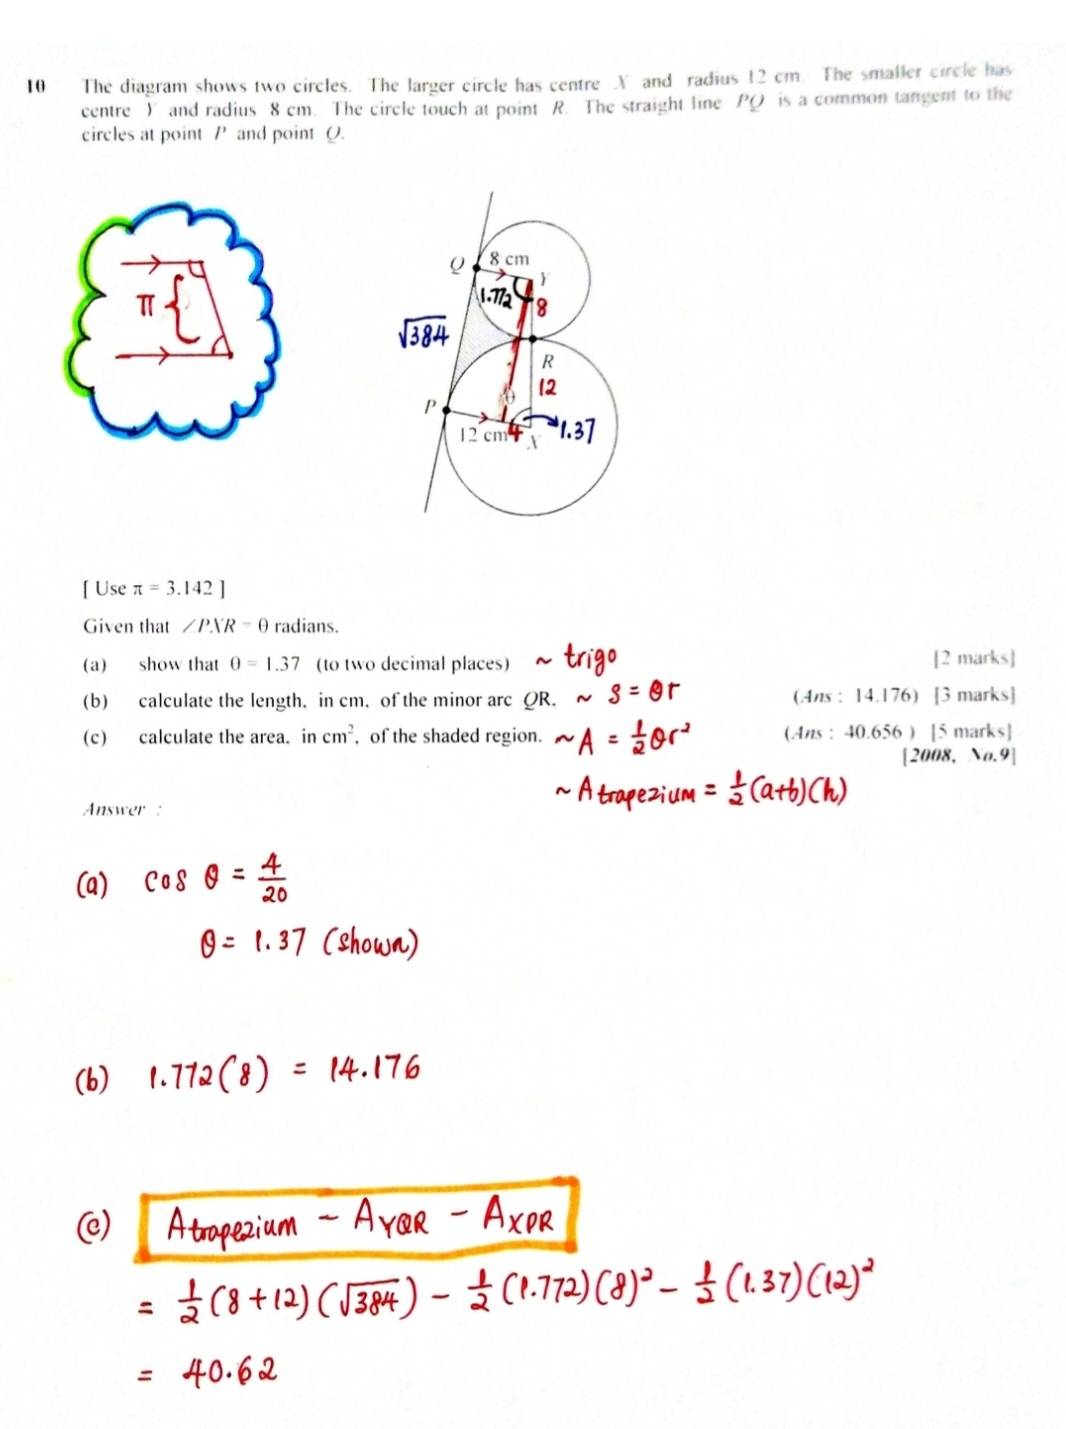 10 The diagram shows two circles. The larger circle has centre X and radius 12 cm. The smaller circle has
centre Y and radius 8 cm. The circle touch at point R. The straight line PQ is a common tangent to the
circles at point P and point Q.
π {
Q 8 cm
Y
1.772 8
√384
R
12
θ
P
12 cm 4 X 1.37
[ Use π = 3.142 ]
Given that ∠PXR = θ radians.
(a) show that θ = 1.37 (to two decimal places) ~ trigo [2 marks]
(b) calculate the length, in cm, of the minor arc QR. ~ S = θr (Ans : 14.176) [3 marks]
(c) calculate the area, in cm², of the shaded region. ~ A = 1/2 θr² (Ans : 40.656 ) [5 marks]
[2008, No.9]
~ A trapezium = 1/2 (a+b)(h)
Answer :
(a) cos θ = 4/20
θ = 1.37 (shown)
(b) 1.772(8) = 14.176
(c) A trapezium - A YQR - A XPR
= 1/2 (8+12)(√384) - 1/2 (1.772)(8)² - 1/2 (1.37)(12)²
= 40.62